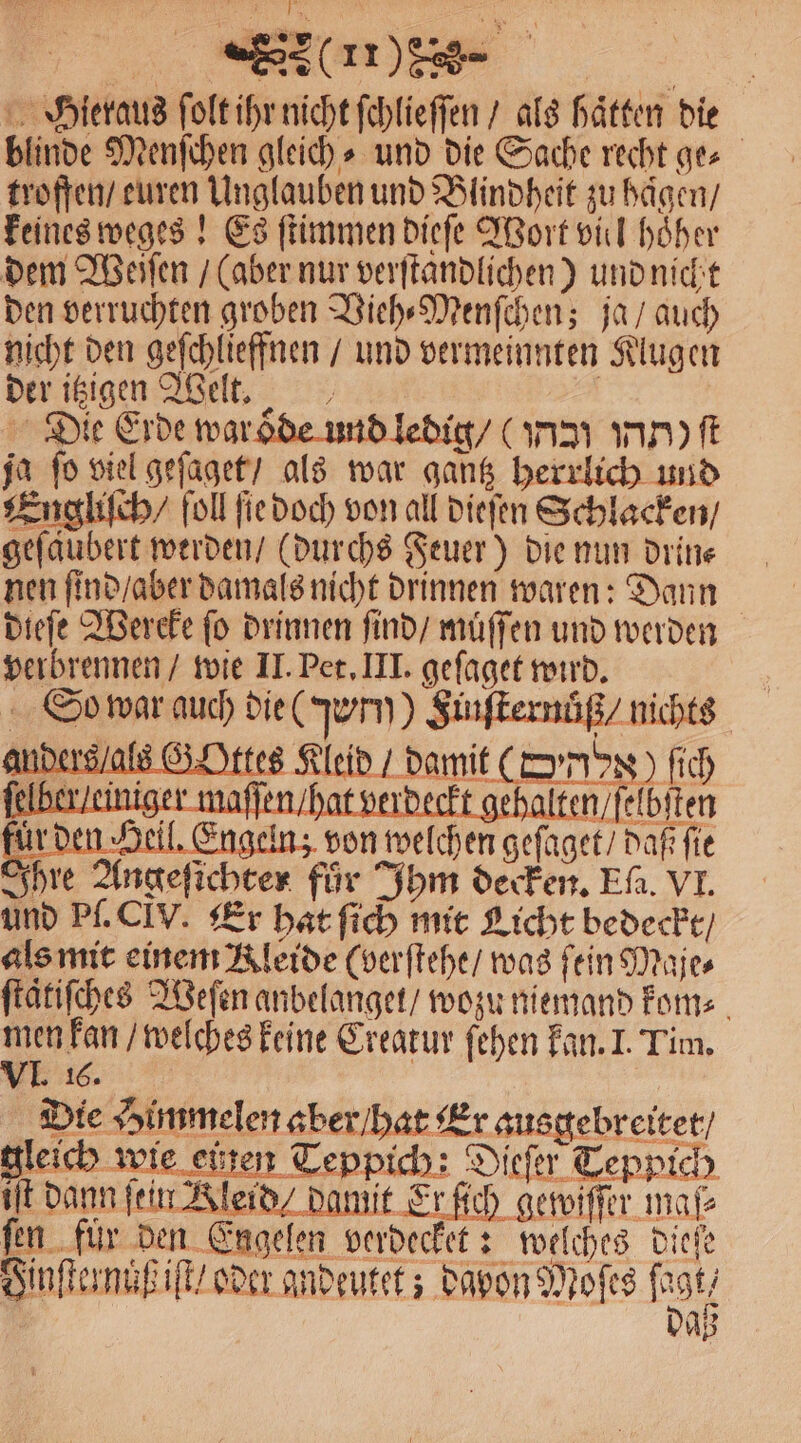 (11)
Hieraus ſolt ihr nicht ſchlieſſen / als haͤtten die
blinde Menſchen gleich⸗ und die Sache recht ge⸗
troffen/ euren Unglauben und Blindheit zu haͤgen/
keines weges ! Es ſtimmen dieſe Wort viel hoͤher
dem Weiſen / (aber nur verſtaͤndlichen) und nicht
den verruchten groben Vieh⸗Menſchen; ja / auch
nicht den geſchlieffnen / und vermeinnten Klugen
der itzigen Welt.
Die Erde war oͤde und ledig/ (תהו ובהו) ſt
ja ſo viel geſaget/ als war gantz herrlich und
Engliſch/ ſoll ſie doch von all dieſen Schlacken/
geſaͤubert werden/ (durchs Feuer) die nun drin⸗
nen ſind/aber damals nicht drinnen waren: Dann
dieſe Wercke ſo drinnen ſind/ muͤſſen und werden
verbrennen / wie II. Pet. III. geſaget wird.
So war auch die (חשך) Finſternuͤß/ nichts
anders/als GOttes Kleid / damit (אלהים) ſich
ſelber/einiger maſſen/hat verdeckt gehalten/ſelbſten
fuͤr den Heil. Engeln; von welchen geſaget/ daß ſie
Ihre Angeſichter fuͤr Ihm decken. Eſa. VI.
und Pſ. CIV. Er hat ſich mit Licht bedeckt/
als mit einem Kleide (verſtehe/ was ſein Maje⸗
ſtaͤtiſches Weſen anbelanget/ wozu niemand kom⸗
men kan / welches keine Creatur ſehen kan. I. Tim.
VI. 16.
Die Himmelen aber/hat Er ausgebreitet/
gleich wie einen Teppich: Dieſer Teppich
iſt dann ſein Kleid/ damit Er ſich gewiſſer maſ⸗
ſen fuͤr den Engelen verdecket: welches dieſe
Finſternuͤß iſt/ oder andeutet; davon Moſes ſagt/
daß